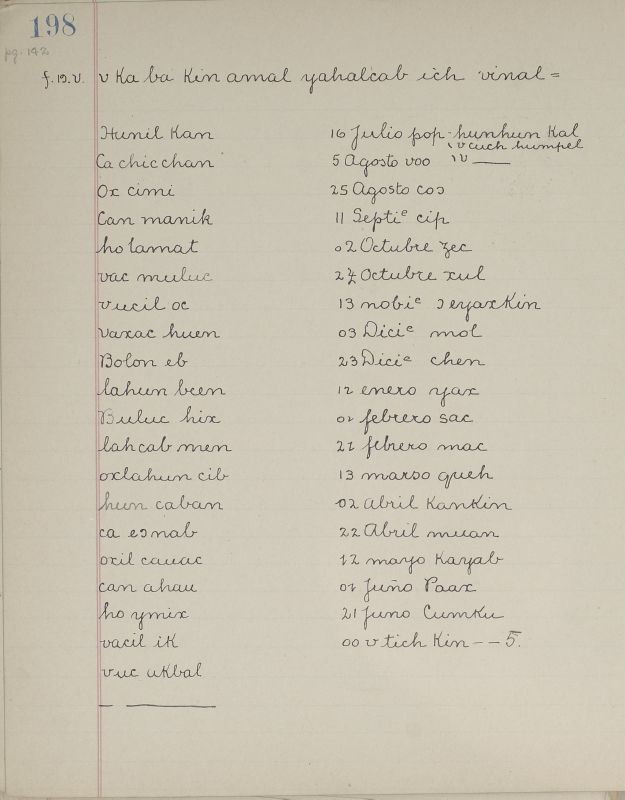 198
pg. 142
f.12.v. v Ka ba Kin amal yahalcab ich vinal =
Hunil Kan 16 Julio pop - hunhun Kal
v cuch humpel
Ca chicchan 5 Agosto voo ıv ——
Ox cimi 25 Agosto coɔ
Can manik 11 Septie cip
ho lamat 02 Octubre zec
vac muluc 27 Octubre xul
vucil oc 13 nobie ɔeyaxKin
vaxac huen 03 Dicie mol
Bolon eb 23 Dicie chen
lahun been 12 enero yax
Buluc hix 01 febrero sac
lahcab men 21 febrero mac
oxlahun cib 13 marso queh
hun caban 02 Abril KanKin
ca eɔnab 22 Abril muan
oxil cauac 12 mayo Kayab
can ahau 01 Juño Paax
ho ymix 21 Juno CumKu
vacil iK 00 v tich Kin -- 5.
vuc aKbal